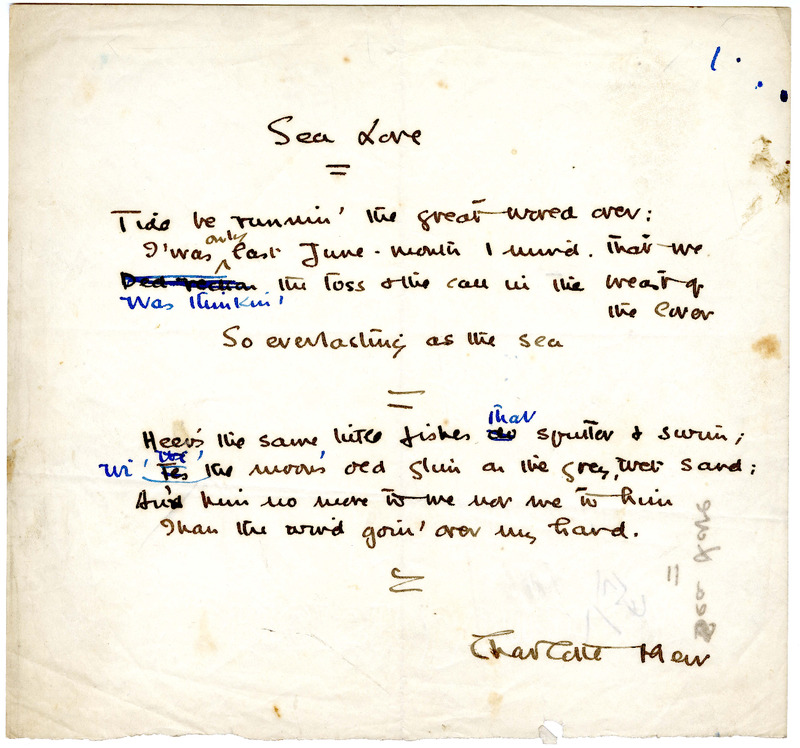 Sea Love
Tide be runnin' the great world over:
I'was only last June-month I mind that we
Was thinkin' the toss & the call in the breast of
the lover
So everlasting as the sea
Heer's the same little fishes that sputter & swim;
Wi' the moon's old glim on the grey, wet sand;
An' him no more to me nor me to him
Than the wind goin' over my hand.
Charlotte Mew
Sea Love